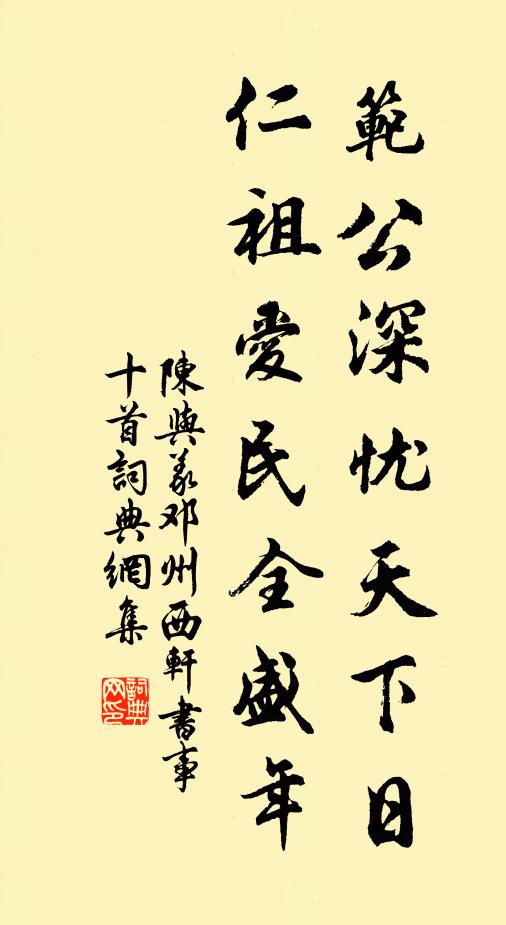 範公深忧天下日
仁祖愛民全盛年
陳與義邓州西軒書事
十首詞典網集
詞典网印